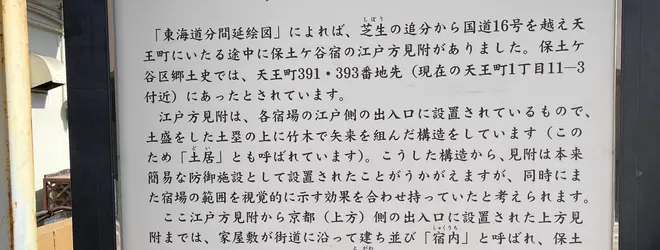 「東海道分間延絵図」によれば、芝生の追分から国道16号を越え天
王町にいたる途中に保土ケ谷宿の江戸方見附がありました。保土ケ
谷区郷土史では、天王町391・393番地先（現在の天王町1丁目11―3
付近）にあったとされています。
江戸方見附は、各宿場の江戸側の出入口に設置されているもので、
土盛をした土塁の上に竹木で矢来を組んだ構造をしています（この
ため「土居」とも呼ばれています）。こうした構造から、見附は本来
簡易な防御施設として設置されたことがうかがえますが、同時にま
た宿場の範囲を視覚的に示す効果を合わせ持っていたと考えられます。
ここ江戸方見附から京都（上方）側の出入口に設置された上方見
附までは、家屋敷が街道に沿って建ち並び「宿内」と呼ばれ、保土